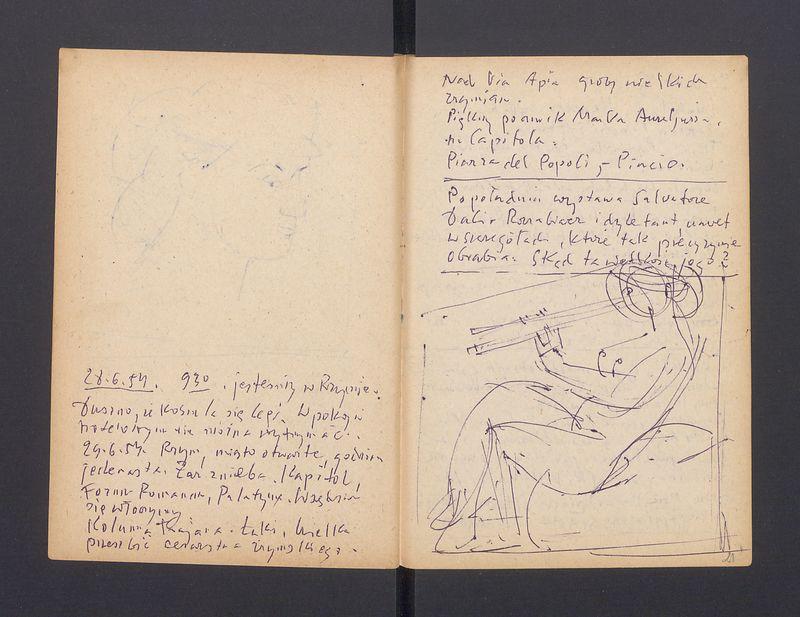 28.6.54. 9³⁰. jesteśmy w Rzymie.
Duszno, że koszula się lepi. W pokoju
hotelowym nie można wytrzymać.
29.6.54. Rzym, miasto otwarte, godzina
jedenasta. Żar z nieba. Kapitol,
Forum Romanum, Palatyn.
się włóczymy
Kolumna Trajana. Łuki, wielka
przeszłość cesarstwa rzymskiego.
Nad Via Apia groby wielkich
rzymian.
Piękny pomnik Marka Aureliusza.
na Capitolu.
Piazza del Popoli, – Pincio.
Popołudniu wystawa Salvatore
Dali – i dyletant, nawet
w szczegółach, które tak precyzyjnie
obrabia. Skąd ta wielkość jego?
21